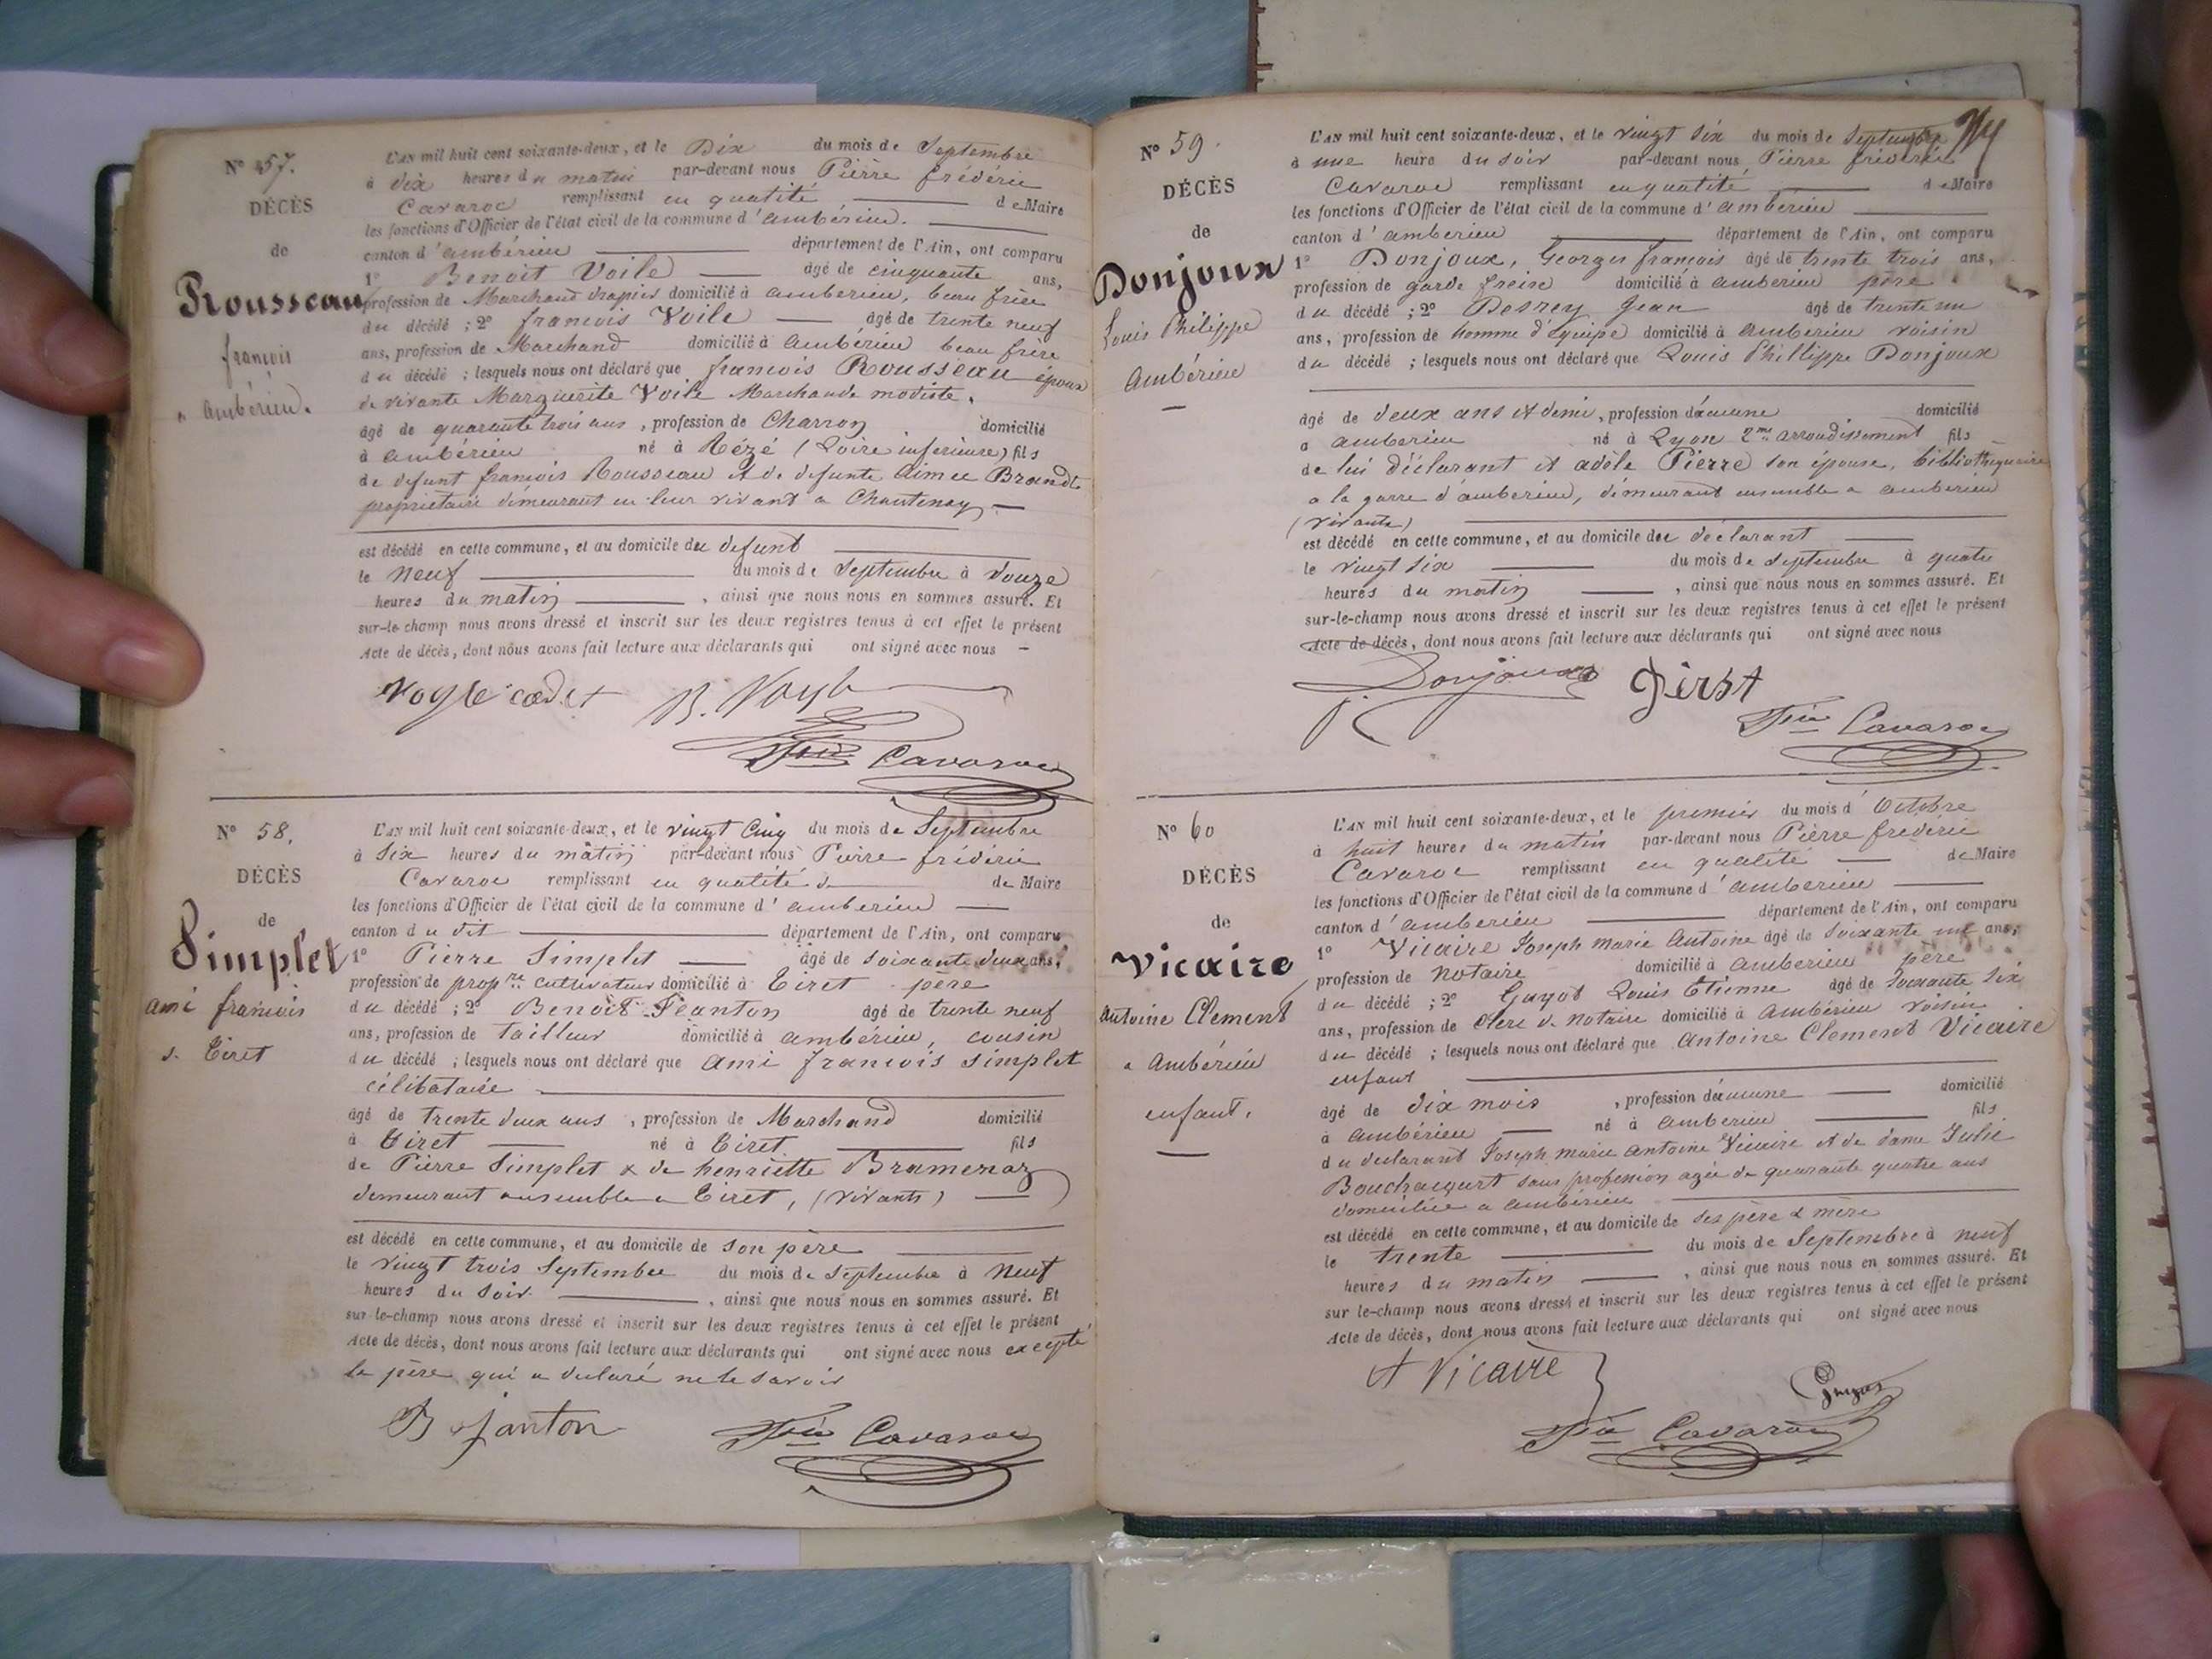 N° 57.
DÉCÈS
de
Rousseau
françois
a ambérieu.
L'AN mil huit cent soixante-deux, et le Dix du mois de Septembre
à dix heures du matin par-devant nous Pierre frédéric
Cavaroc remplissant en qualité de Maire
les fonctions d'Officier de l'état civil de la commune d'ambérieu.
canton d'ambérieu département de l'Ain, ont comparu
1° Benoit Voile âgé de cinquante ans,
profession de Marchand drapier domicilié à amberieu, beau frère
du décédé ; 2° francois Voile âgé de trente neuf
ans, profession de Marchand domicilié à ambérieu beau frère
du décédé ; lesquels nous ont déclaré que francois Rousseau époux
de vivante Marguerite Voile Marchande modiste.
âgé de quarante trois ans, profession de Charron domicilié
à ambérieu né à Rézé (Loire inferieure) fils
de defunt francois Rousseau et de defunte Aimee Brandt
propriétaire démeurant en leur vivant a Chantenay
est décédé en cette commune, et au domicile du defunt
le neuf du mois de Septembre à douze
heures du matin, ainsi que nous nous en sommes assuré. Et
sur-le-champ nous avons dressé et inscrit sur les deux registres tenus à cet effet le présent
Acte de décès, dont nous avons fait lecture aux déclarants qui ont signé avec nous
Voyle cadet B. Voyle
Fric Cavaroc
N° 58.
DÉCÈS
de
Simplet
ami francois
d. Tiret
L'AN mil huit cent soixante-deux, et le vingt Cinq du mois de Septembre
à Six heures du matin par-devant nous Pierre frédéric
Cavaroc remplissant en qualité de Maire
les fonctions d'Officier de l'état civil de la commune d'amberieu
canton du dit département de l'Ain, ont comparu
1° Pierre Simplet âgé de soixante deux ans,
profession de propre cultivateur domicilié à Tiret père
du décédé ; 2° Benoit Janton âgé de trente neuf
ans, profession de tailleur domicilié à ambérieu, cousin
du décédé ; lesquels nous ont déclaré que ami francois Simplet
célibataire
âgé de trente deux ans, profession de Marchand domicilié
à Tiret né à Tiret fils
de Pierre Simplet & de henriette Bramenaz
demeurant ensemble a Tiret, (vivants)
est décédé en cette commune, et au domicile de son père
le vingt trois Septembre du mois de Septembre à neuf
heures du soir, ainsi que nous nous en sommes assuré. Et
sur-le-champ nous avons dressé et inscrit sur les deux registres tenus à cet effet le présent
Acte de décès, dont nous avons fait lecture aux déclarants qui ont signé avec nous excepté
le père qui a declaré ne le savoir
B Janton Fric Cavaroc
N° 59.
DÉCÈS
de
Donjoux
Louis Philippe
Ambérieu
L'AN mil huit cent soixante-deux, et le vingt six du mois de Septembre
à une heure du soir par-devant nous Pierre fréderic
Cavaroc remplissant en qualité de Maire
les fonctions d'Officier de l'état civil de la commune d'amberieu
canton d'amberieu département de l'Ain, ont comparu
1° Donjoux, Georges francois âgé de trente trois ans,
profession de garde freins domicilié à amberieu père
du décédé ; 2° Jean âgé de trente un
ans, profession de homme d'équipe domicilié à amberieu voisin
du décédé ; lesquels nous ont déclaré que Louis Phillippe Donjoux
âgé de deux ans et demi, profession d'aucune domicilié
a amberieu né à Lyon 2me arrondissement fils
de lui déclarant et adèle Pierre son épouse, bibliothequaire
a la garre d'amberieu, démeurant ensemble a amberieu
(vivante)
est décédé en cette commune, et au domicile du déclarant
le vingt six du mois de septembre à quatre
heures du matin, ainsi que nous nous en sommes assuré. Et
sur-le-champ nous avons dressé et inscrit sur les deux registres tenus à cet effet le présent
Acte de décès, dont nous avons fait lecture aux déclarants qui ont signé avec nous
Donjoux
Fric Cavaroc
N° 60
DÉCÈS
de
Vicaire
Antoine Clement
a Ambérieu
enfant.
L'AN mil huit cent soixante-deux, et le premier du mois d'Octobre
à huit heures du matin par-devant nous Pierre frédéric
Cavaroc remplissant en qualité de Maire
les fonctions d'Officier de l'état civil de la commune d'amberieu
canton d'amberieu département de l'Ain, ont comparu
1° Vicaire Joseph marie Antoine âgé de soixante un ans,
profession de notaire domicilié à amberieu père
du décédé ; 2° Guyot Louis Etienne âgé de soixante six
ans, profession de Clerc de Notaire domicilié à ambérieu voisin
du décédé ; lesquels nous ont déclaré que Antoine Clement Vicaire
enfant
âgé de dix mois, profession d'aucune domicilié
à ambérieu né à amberieu fils
du declarant Joseph marie antoine Vicaire et de dame Julie
Bouchacourt sans profession agée de quarante quatre ans
domiciliée a ambérieu
est décédé en cette commune, et au domicile de ses père & mère
le trente du mois de Septembre à neuf
heures du matin, ainsi que nous nous en sommes assuré. Et
sur le-champ nous avons dressé et inscrit sur les deux registres tenus à cet effet le présent
Acte de décès, dont nous avons fait lecture aux déclarants qui ont signé avec nous
A Vicaire Guyot
Fric Cavaroc